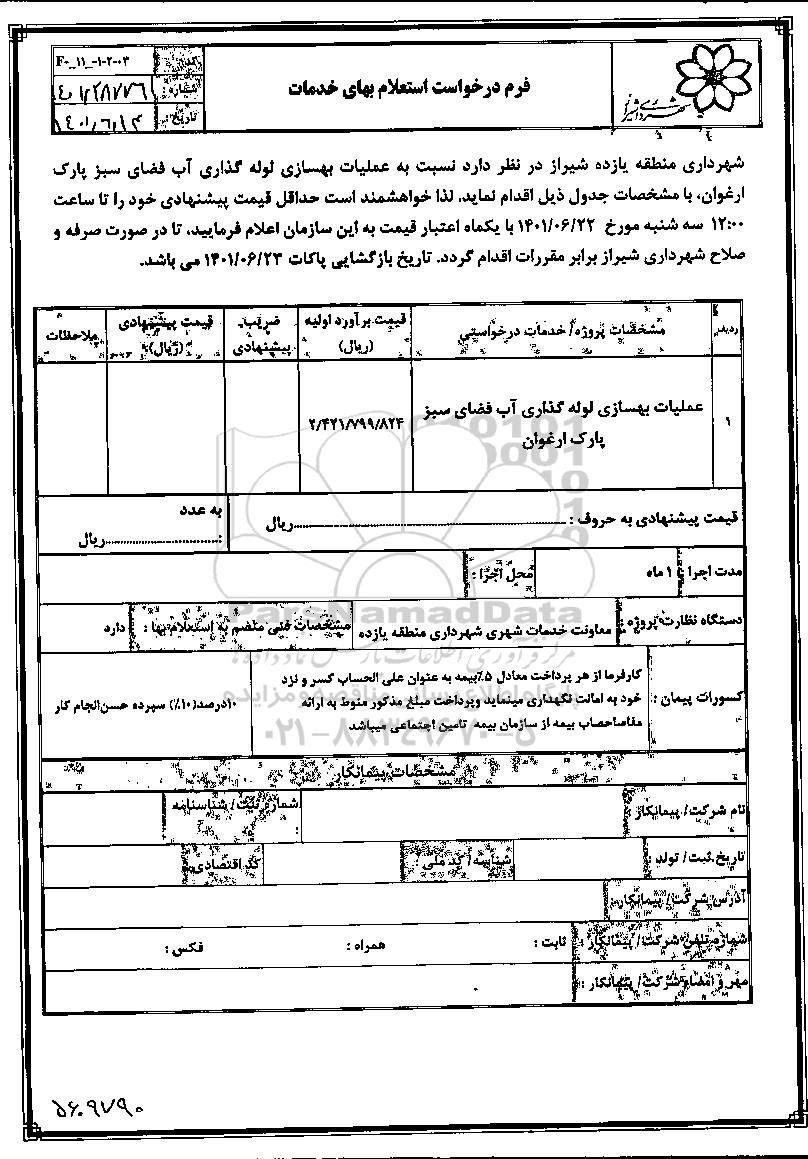 شهرداری شیراز
فرم درخواست استعلام بهای خدمات
کد: F-_۱۱_-۱-۲-۰۳
شماره: ۱۴۰۱/۲۸۷۷۶
تاریخ: ۱۴۰۱/۶/۱۳
شهرداری منطقه یازده شیراز در نظر دارد نسبت به عملیات بهسازی لوله گذاری آب فضای سبز پارک
ارغوان، با مشخصات جدول ذیل اقدام نماید، لذا خواهشمند است حداقل قیمت پیشنهادی خود را تا ساعت
۱۲:۰۰ سه شنبه مورخ ۱۴۰۱/۰۶/۲۲ با یکماه اعتبار قیمت به این سازمان اعلام فرمایید، تا در صورت صرفه و
صلاح شهرداری شیراز برابر مقررات اقدام گردد. تاریخ بازگشایی پاکات ۱۴۰۱/۰۶/۲۳ می باشد.
ردیف مشخصات پروژه/ خدمات درخواستی قیمت برآورد اولیه (ریال) ضریب پیشنهادی قیمت پیشنهادی (ریال) ملاحظات
۱ عملیات بهسازی لوله گذاری آب فضای سبز ۲/۴۲۱/۷۹۹/۸۲۴
پارک ارغوان
قیمت پیشنهادی به حروف : ........ریال به عدد
:........ریال
مدت اجرا : ۱ ماه محل اجرا :
دستگاه نظارت پروژه : معاونت خدمات شهری شهرداری منطقه یازده مشخصات فنی منضم به استعلام بها : دارد
کسورات پیمان : کارفرما از هر پرداخت معادل ۵٪بیمه به عنوان علی الحساب کسر و نزد
خود به امانت نگهداری مینماید وپرداخت مبلغ مذکور منوط به ارائه
مفاصاحصاب بیمه از سازمان بیمه تامین اجتماعی میباشد
۱۰درصد(۱۰٪) سپرده حسن انجام کار
مشخصات پیمانکار
نام شرکت/ پیمانکار : شماره ثبت/ شناسنامه :
تاریخ ثبت/ تولد : شناسه/ کد ملی : کد اقتصادی :
آدرس شرکت/ پیمانکار :
شماره تلفن شرکت/ پیمانکار : ثابت : همراه : فکس :
مهر و امضاء شرکت/ پیمانکار :
ParsNamadData
مرکز فرآوری اطلاعات پارس نماد داده ها
پایگاه اطلاع رسانی مناقصه و مزایده
۰۲۱-۸۸۳۴۹۶۷۰-۵
۵۶۰۹۷۹۰